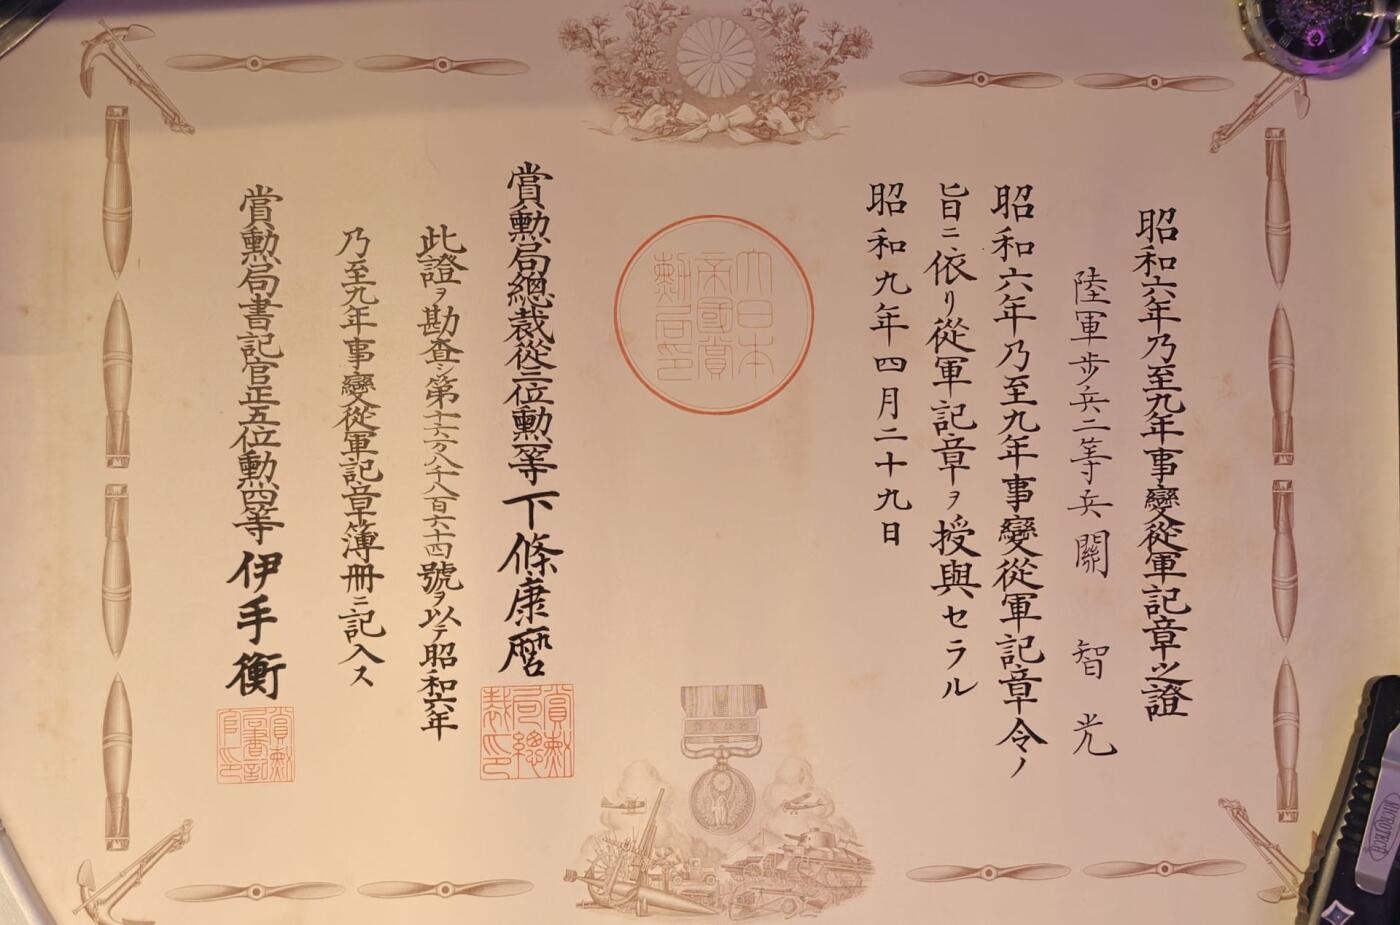 昭和六年乃至九年事變從軍記章之證
陸軍歩兵二等兵關智光
昭和六年乃至九年事變從軍記章令ノ
旨ニ依リ從軍記章ヲ授與セラル
昭和九年四月二十九日
大日本
帝國賞
勲局印
賞勲局總裁從三位勲一等下條康麿
賞勲
局總
裁印
此證ヲ勘査シ第十六万八千八百六十四號ヲ以テ昭和六年
乃至九年事變從軍記章簿冊ニ記入ス
賞勲局書記官正五位勲四等伊手衡
賞勲
局書記
官印